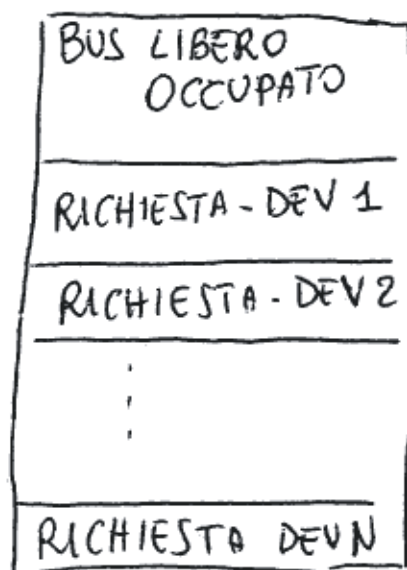 BUS LIBERO
OCCUPATO
RICHIESTA - DEV 1
RICHIESTA - DEV 2
RICHIESTA DEV N